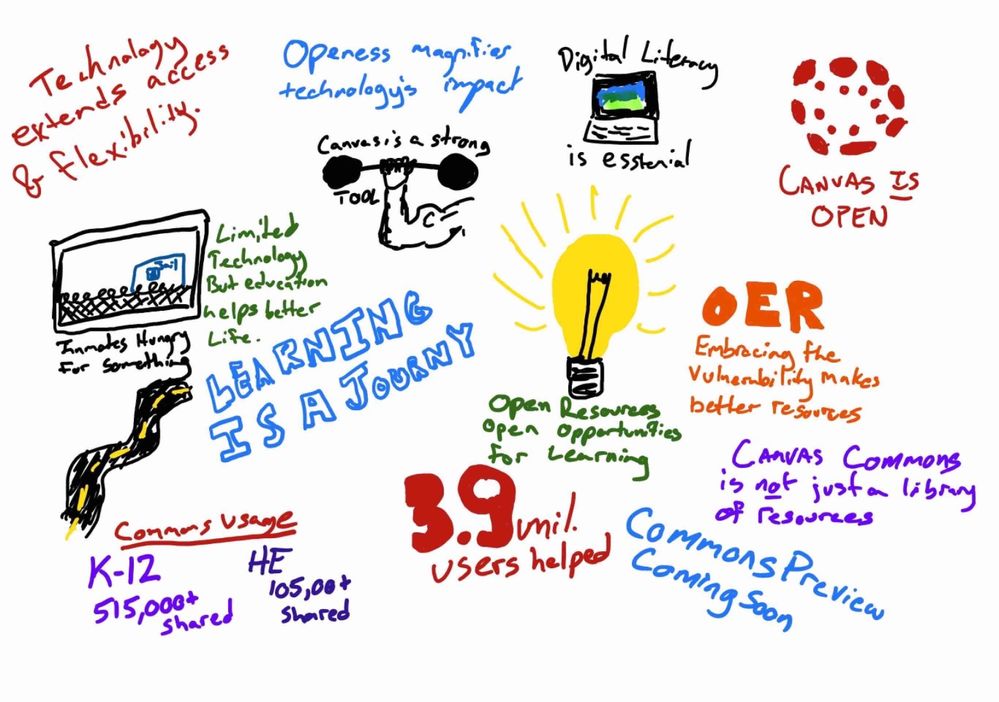 Technology
extends access
& flexibility.
Openess magnifies
technology's impact
Digital Literacy
is esstenial
CANVAS IS
OPEN
Canvas is a strong
TOOL
Jail
Limited
Technology
But education
helps better
Life.
Inmates Hungry
for something
LEARNING
IS A JOURNY
OER
Embracing the
Vulnerability makes
better resources
Open Resources
Open Opportunities
for Learning
CANVAS COMMONS
is not just a library
of resources
3.9 mil.
users helped
Commons Preview
Coming Soon
Commons Usage
K-12
515,000+
shared
HE
105,00+
shared